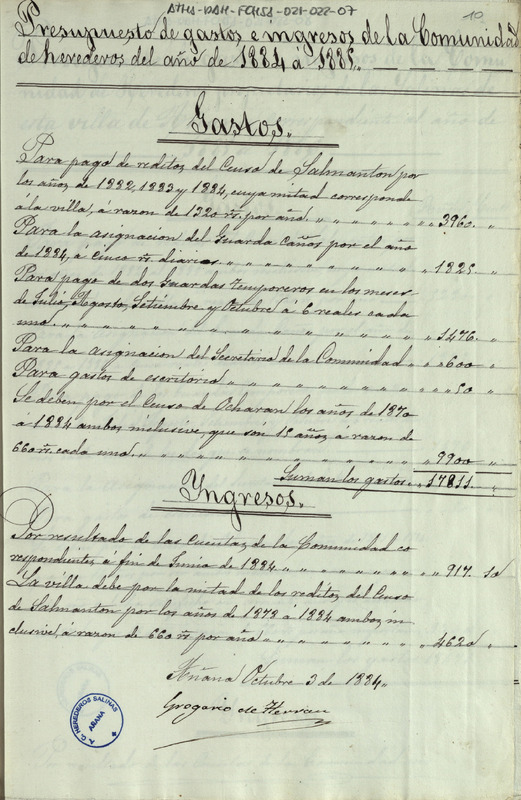 ATHA-DAH-FCHSA-021-022-07
10
Presupuesto de gastos e ingresos de la Comunidad
de herederos del año de 1884 a 1885.
Gastos.
Para pago de reditos del Censo de Salmanton por
los años de 1882, 1883 y 1884, cuya mitad corresponde
á la villa, á razon de 1320 rs. por año " " " " " " " 3960. "
Para la asignacion del Guarda Caños por el año
de 1884, á cinco rs. diarios " " " " " " " " " 1825. "
Para pago de dos Guardas temporeros en los meses
de Julio, Agosto, Setiembre y Octubre á 6 reales cada
uno. " " " " " " " " " " " " " " 1476. "
Para la asignacion del Secretario de la Comunidad " " 600 "
Para gastos de escritorio " " " " " " " " " 50 "
Se deben por el Censo de Ocharan los años de 1870
a 1884 ambos inclusive, que son 15 años á razon de
660 rs. cada uno. " " " " " " " " " " " 9900 "
Suman los gastos. " 17811. "
Ingresos.
Por resultado de las Cuentas de la Comunidad co
rrespondientes á fin de Junio de 1884 " " " " " " " 917. 50
La villa debe por la mitad de los reditos del Censo
de Salmanton por los años de 1878 á 1884 ambos in
clusive, á razon de 660 rs. por año " " " " " " " 4620 "
Añana Octubre 3 de 1884
Grogorio de Herran
A. C. HEREDEROS SALINAS
AÑANA